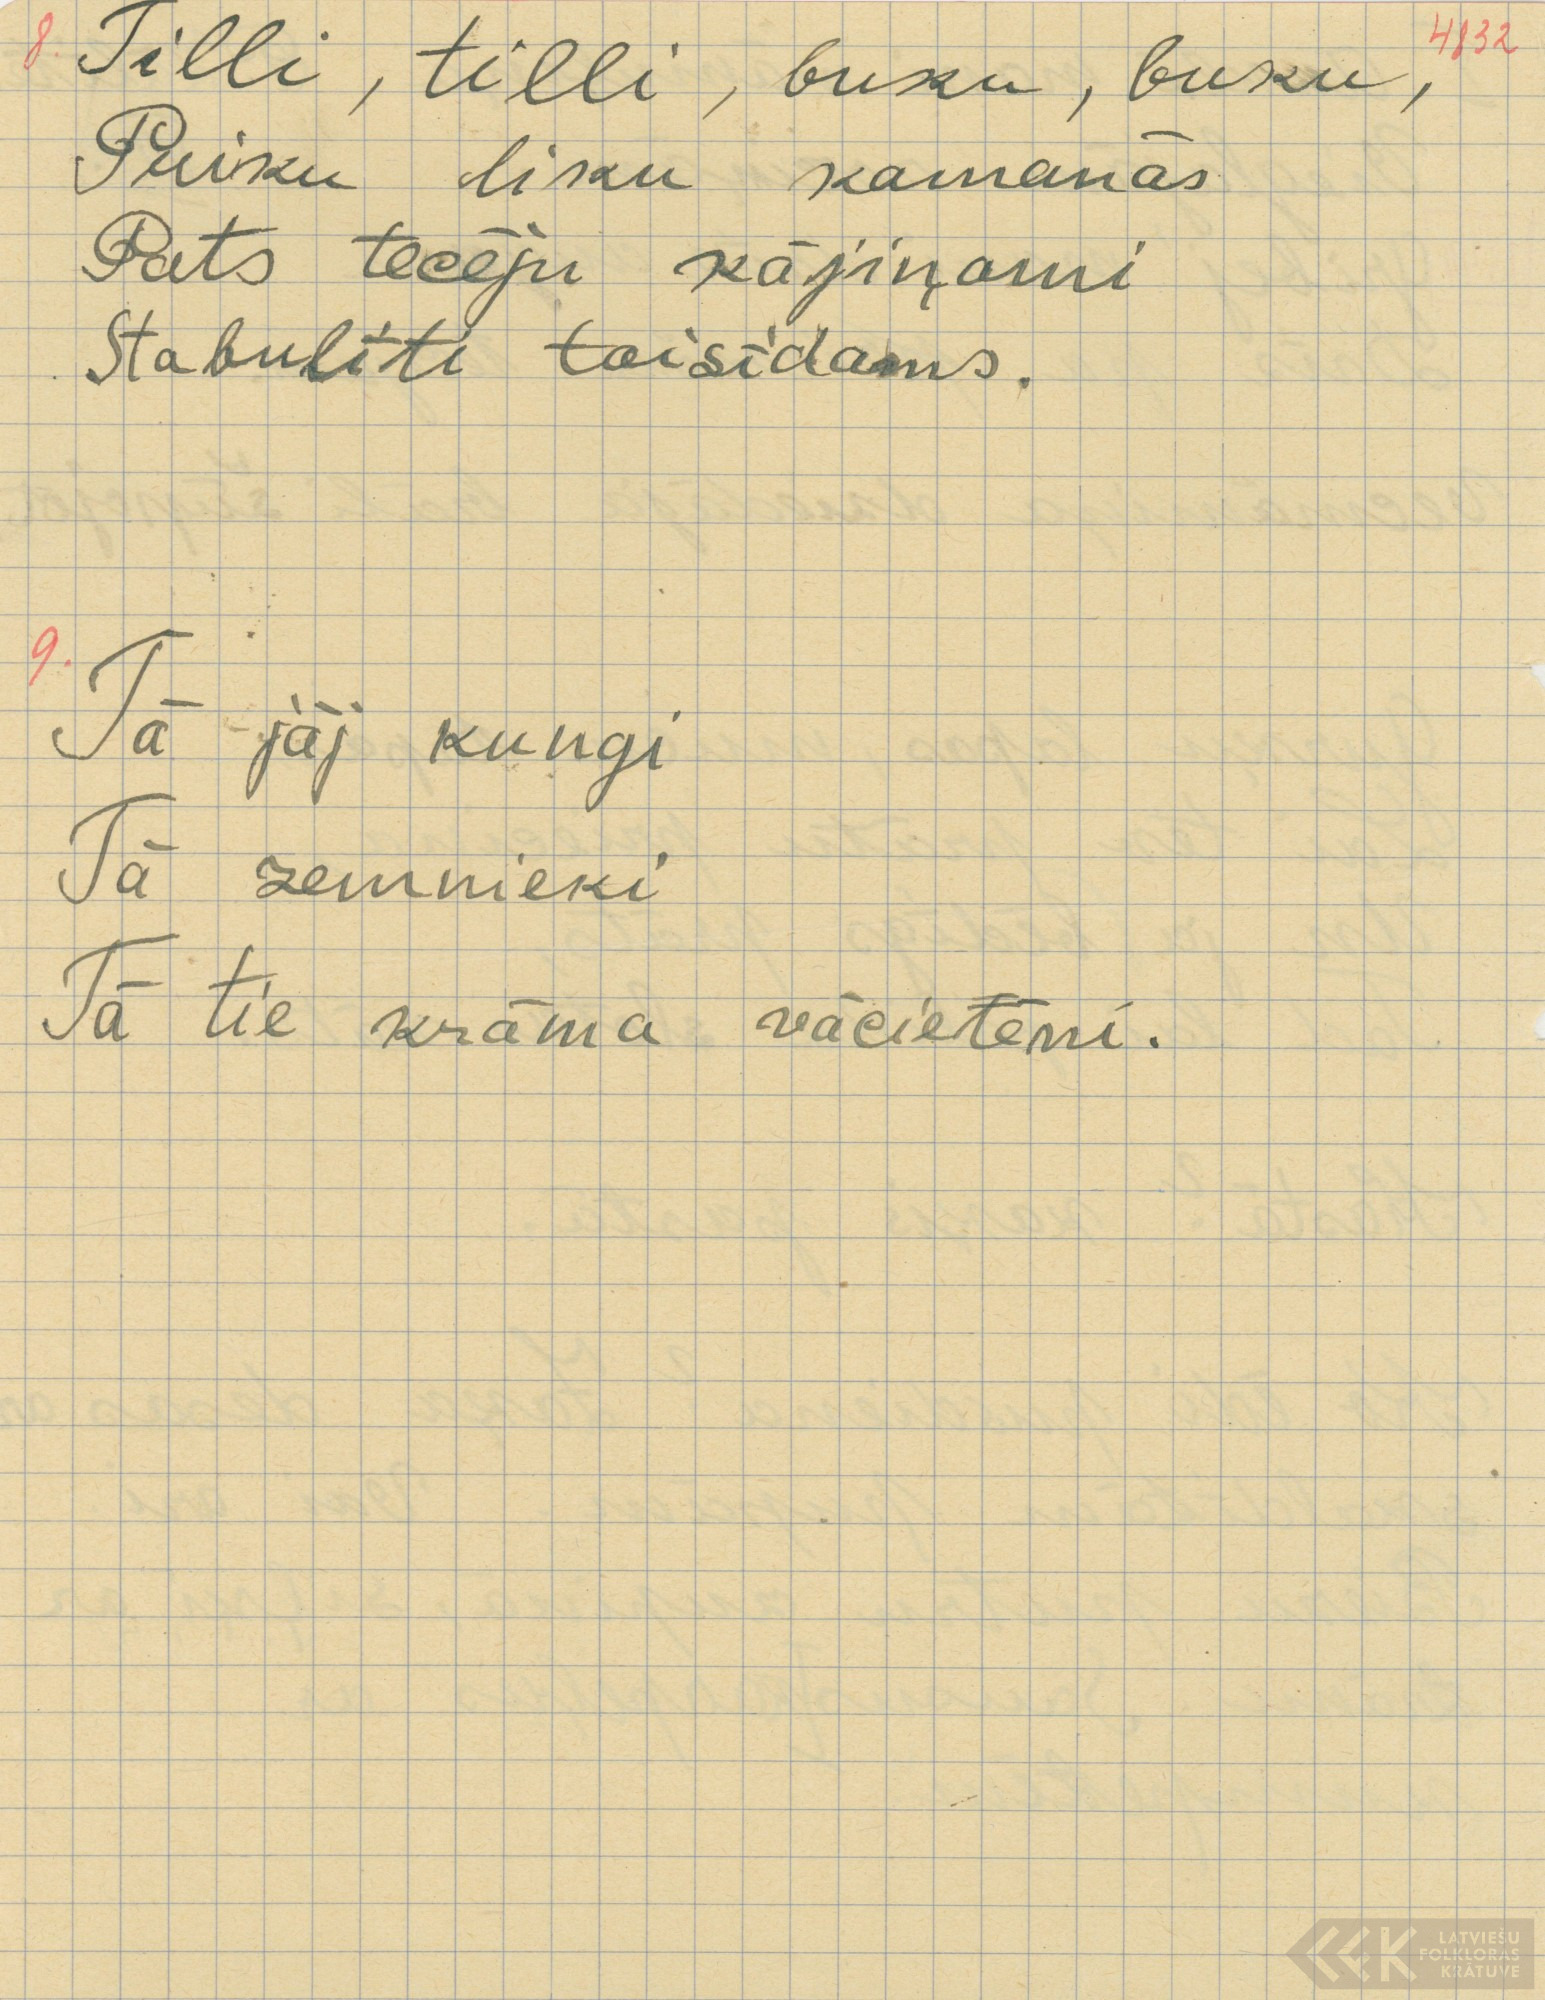 8. Tilli, tilli, buku, buku, 4832
Puiku liku kamanās
Pats tecēju kājiņami
Stabulīti taisīdams.
9. Tā jāj kungi
Tā zemnieki
Tā tie krāma vācietēni.
LATVIEŠU
FOLKLORAS
KRĀTUVE